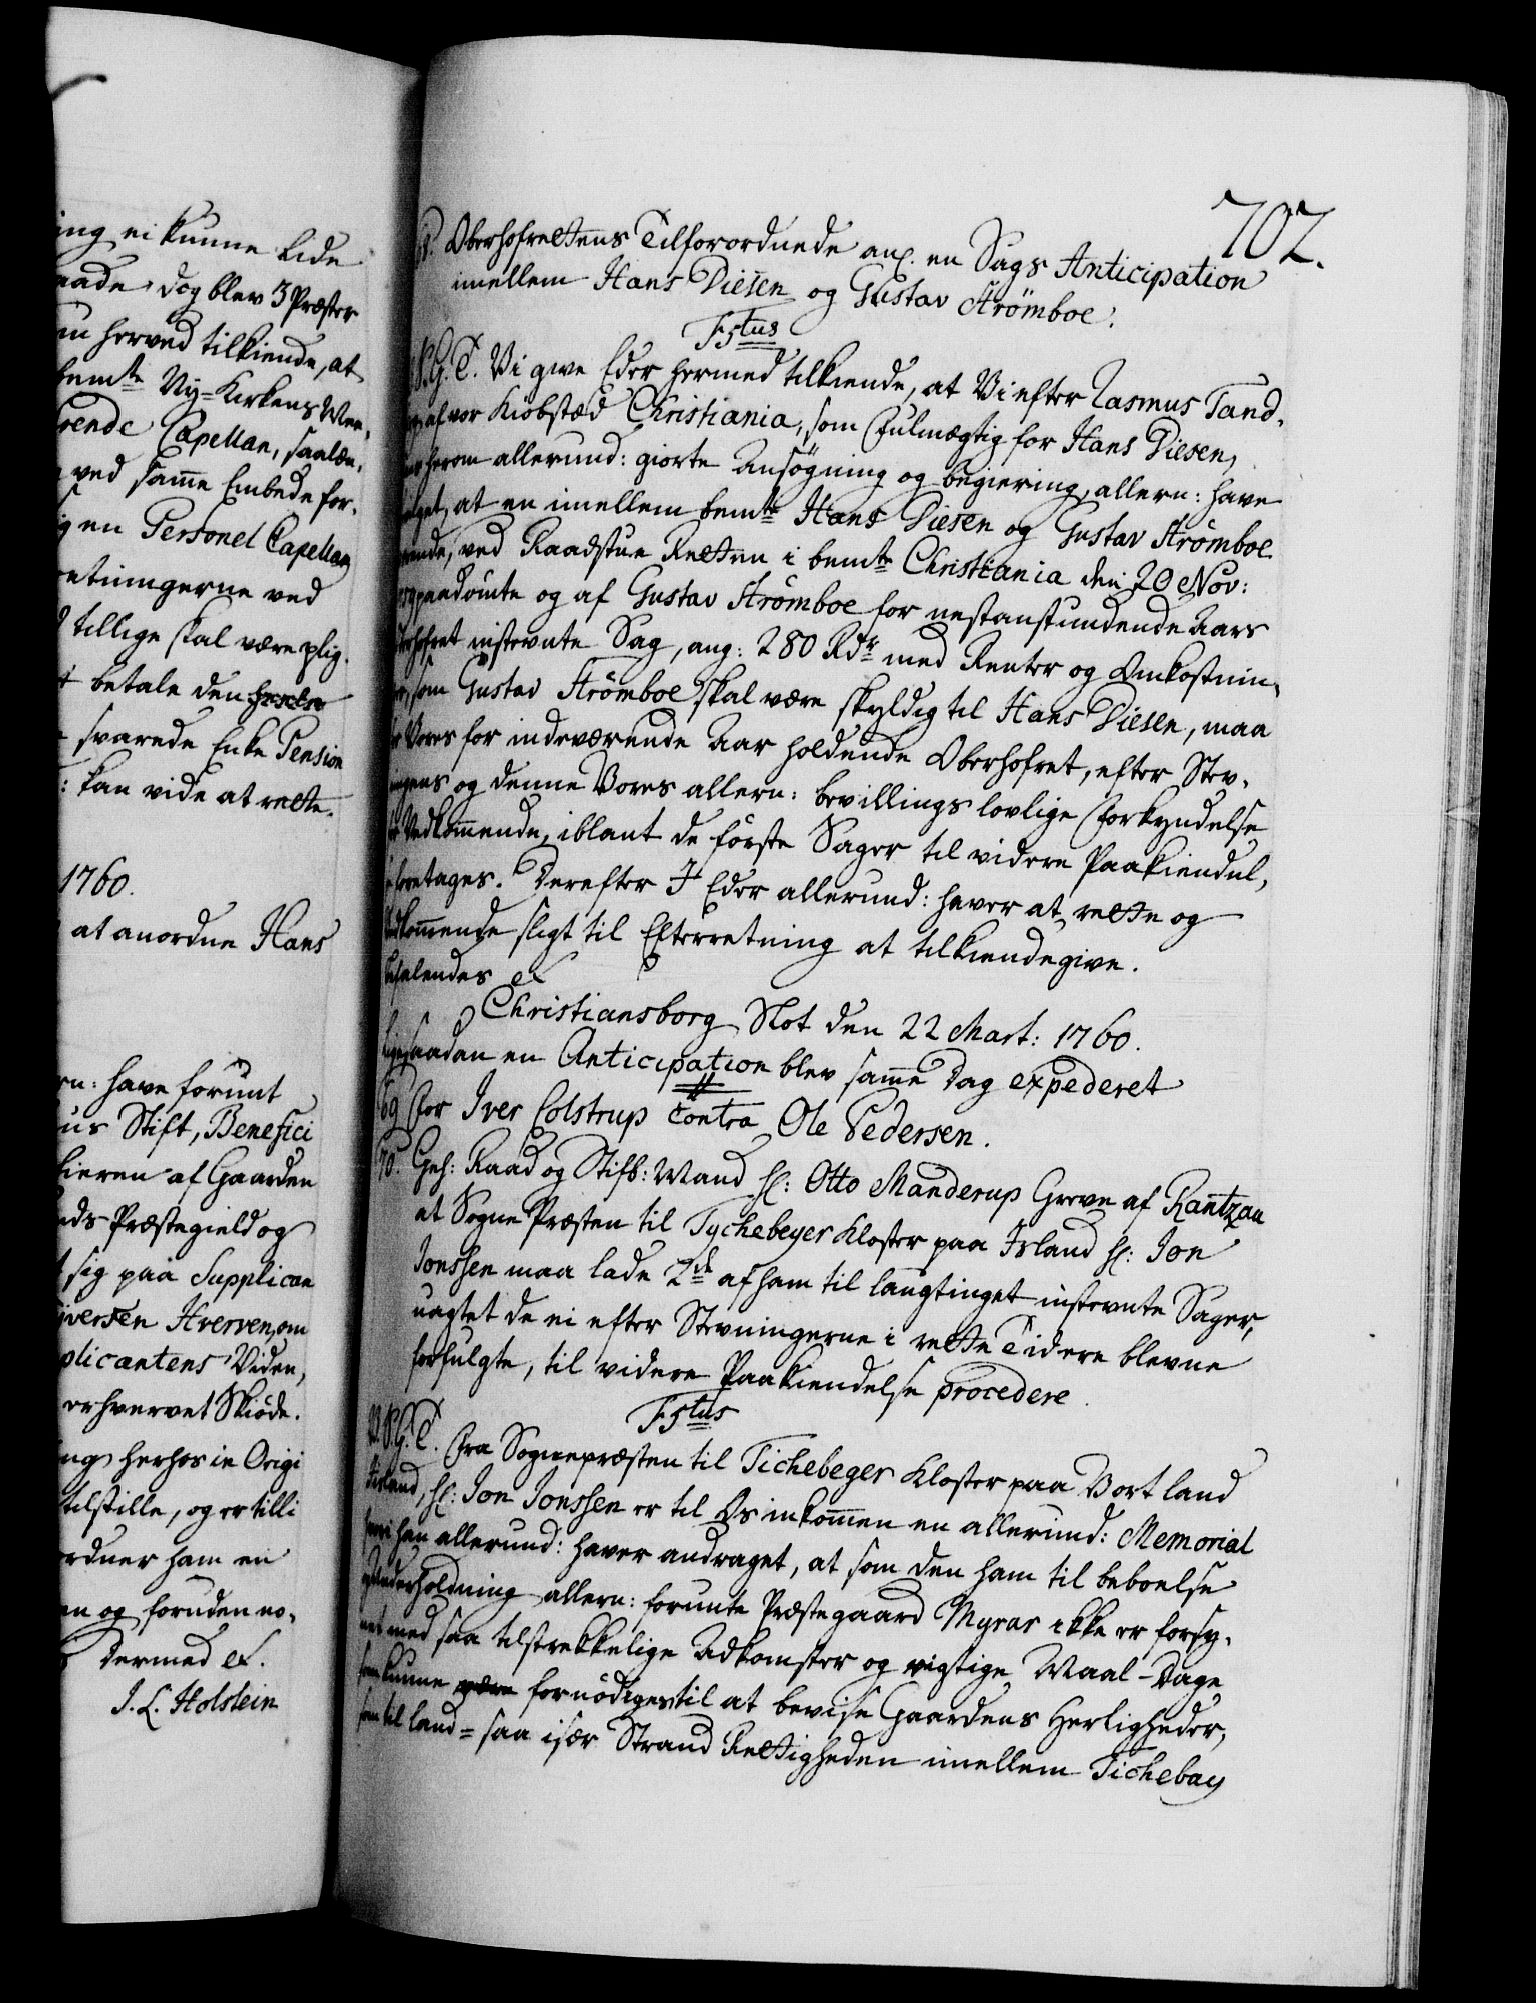 ing ei kunne lide
aade, dog blev 3 Præster
herved tilkiende, at
bemte Ny-Kirkens Mee,
rende Capellan, saalæn,
ved samme Embede for,
ig en Personel Capellan
retningerne ved
tillige skal være plig,
betale den
svarede Enke Pension
: kan vide at rette.
1760.
at anordne Hans
rn: have forunt
us Stift, Benefici
kieren af Gaarden
nds Præstegield og
sig paa Supplican
iversen Hverven, om
plicantens Viden,
erhvervet Skiøde.
ng herhos in Origi
tilstille, og er tilli
ordner ham en
en og foruden no,
Dermed etc.
J. L. Holstein
702.
68. Oberhofrettens Tilforordnede ang. en Sags Anticipation
imellem Hans Diesen og Gustav Strömboe.
F 5tus
V.S.G.T. Vi give Eder hermed tilkiende, at Vi efter Rasmus Tand,
af vor Kiøbstæd Christiania, som Fulmægtig for Hans Diesen,
herom allerund: giorte Ansøgning og begiering, allern: have
at en imellem bemte Hans Diesen og Gustav Strömboe
ved Raadstue Retten i bemte Christiania den 20 Nov:
paadömte og af Gustav Strömboe for nestanstundende Aars
Oberhofret instevnte Sag, ang: 280 Rdr med Renter og Omkostnin,
ger, som Gustav Strömboe skal være skyldig til Hans Diesen, maa
for Vores for indeværende Aar holdende Oberhofret, efter Stev,
ningens og denne Vores allern: bevillings lovlige Forkyndelse
for Vedkommende, iblant de förste Sager til videre Paakiendel,
se foretages. Derefter I Eder allerund: haver at rette og
Vedkommende sligt til Efterretning at tilkiendegive.
Befalendes etc
Christiansborg Slot den 22 Mart: 1760.
Ligesaadan en Anticipation blev samme Dag expederet
69 for Iver Colstrup Contra Ole Pedersen.
70. Geh: Raad og Stifb: Mand Hr: Otto Manderup Greve af Rantzau
at Sogne Præsten til Tychebeyer Kloster paa Island Hr: Jon
Jonssen maa lade 2de af ham til laugtinget instevnte Sager,
uagtet de ei efter Stevningerne i rette Tidere blevne
forfulgte, til videre Paakiendelse procedere.
F 5tus
V.S.G.T. Fra Sognepræsten til Tichebeger Kloster paa Vort land
Island, Hr: Jon Jonssen er til Os inkommen en allerund: Memorial
hvori han allerund: haver andraget, at som den ham til beboelse
og Underholdning allern: forunte Præstegaard Myrar ikke er forsy,
net med saa tilstrekkelige Adkomster og vigtige Maal-Dage
som kunne være fornödiges til at bevise Gaardens Herligheder,
som til land- saa især Strand Rettigheden imellem Tichebay